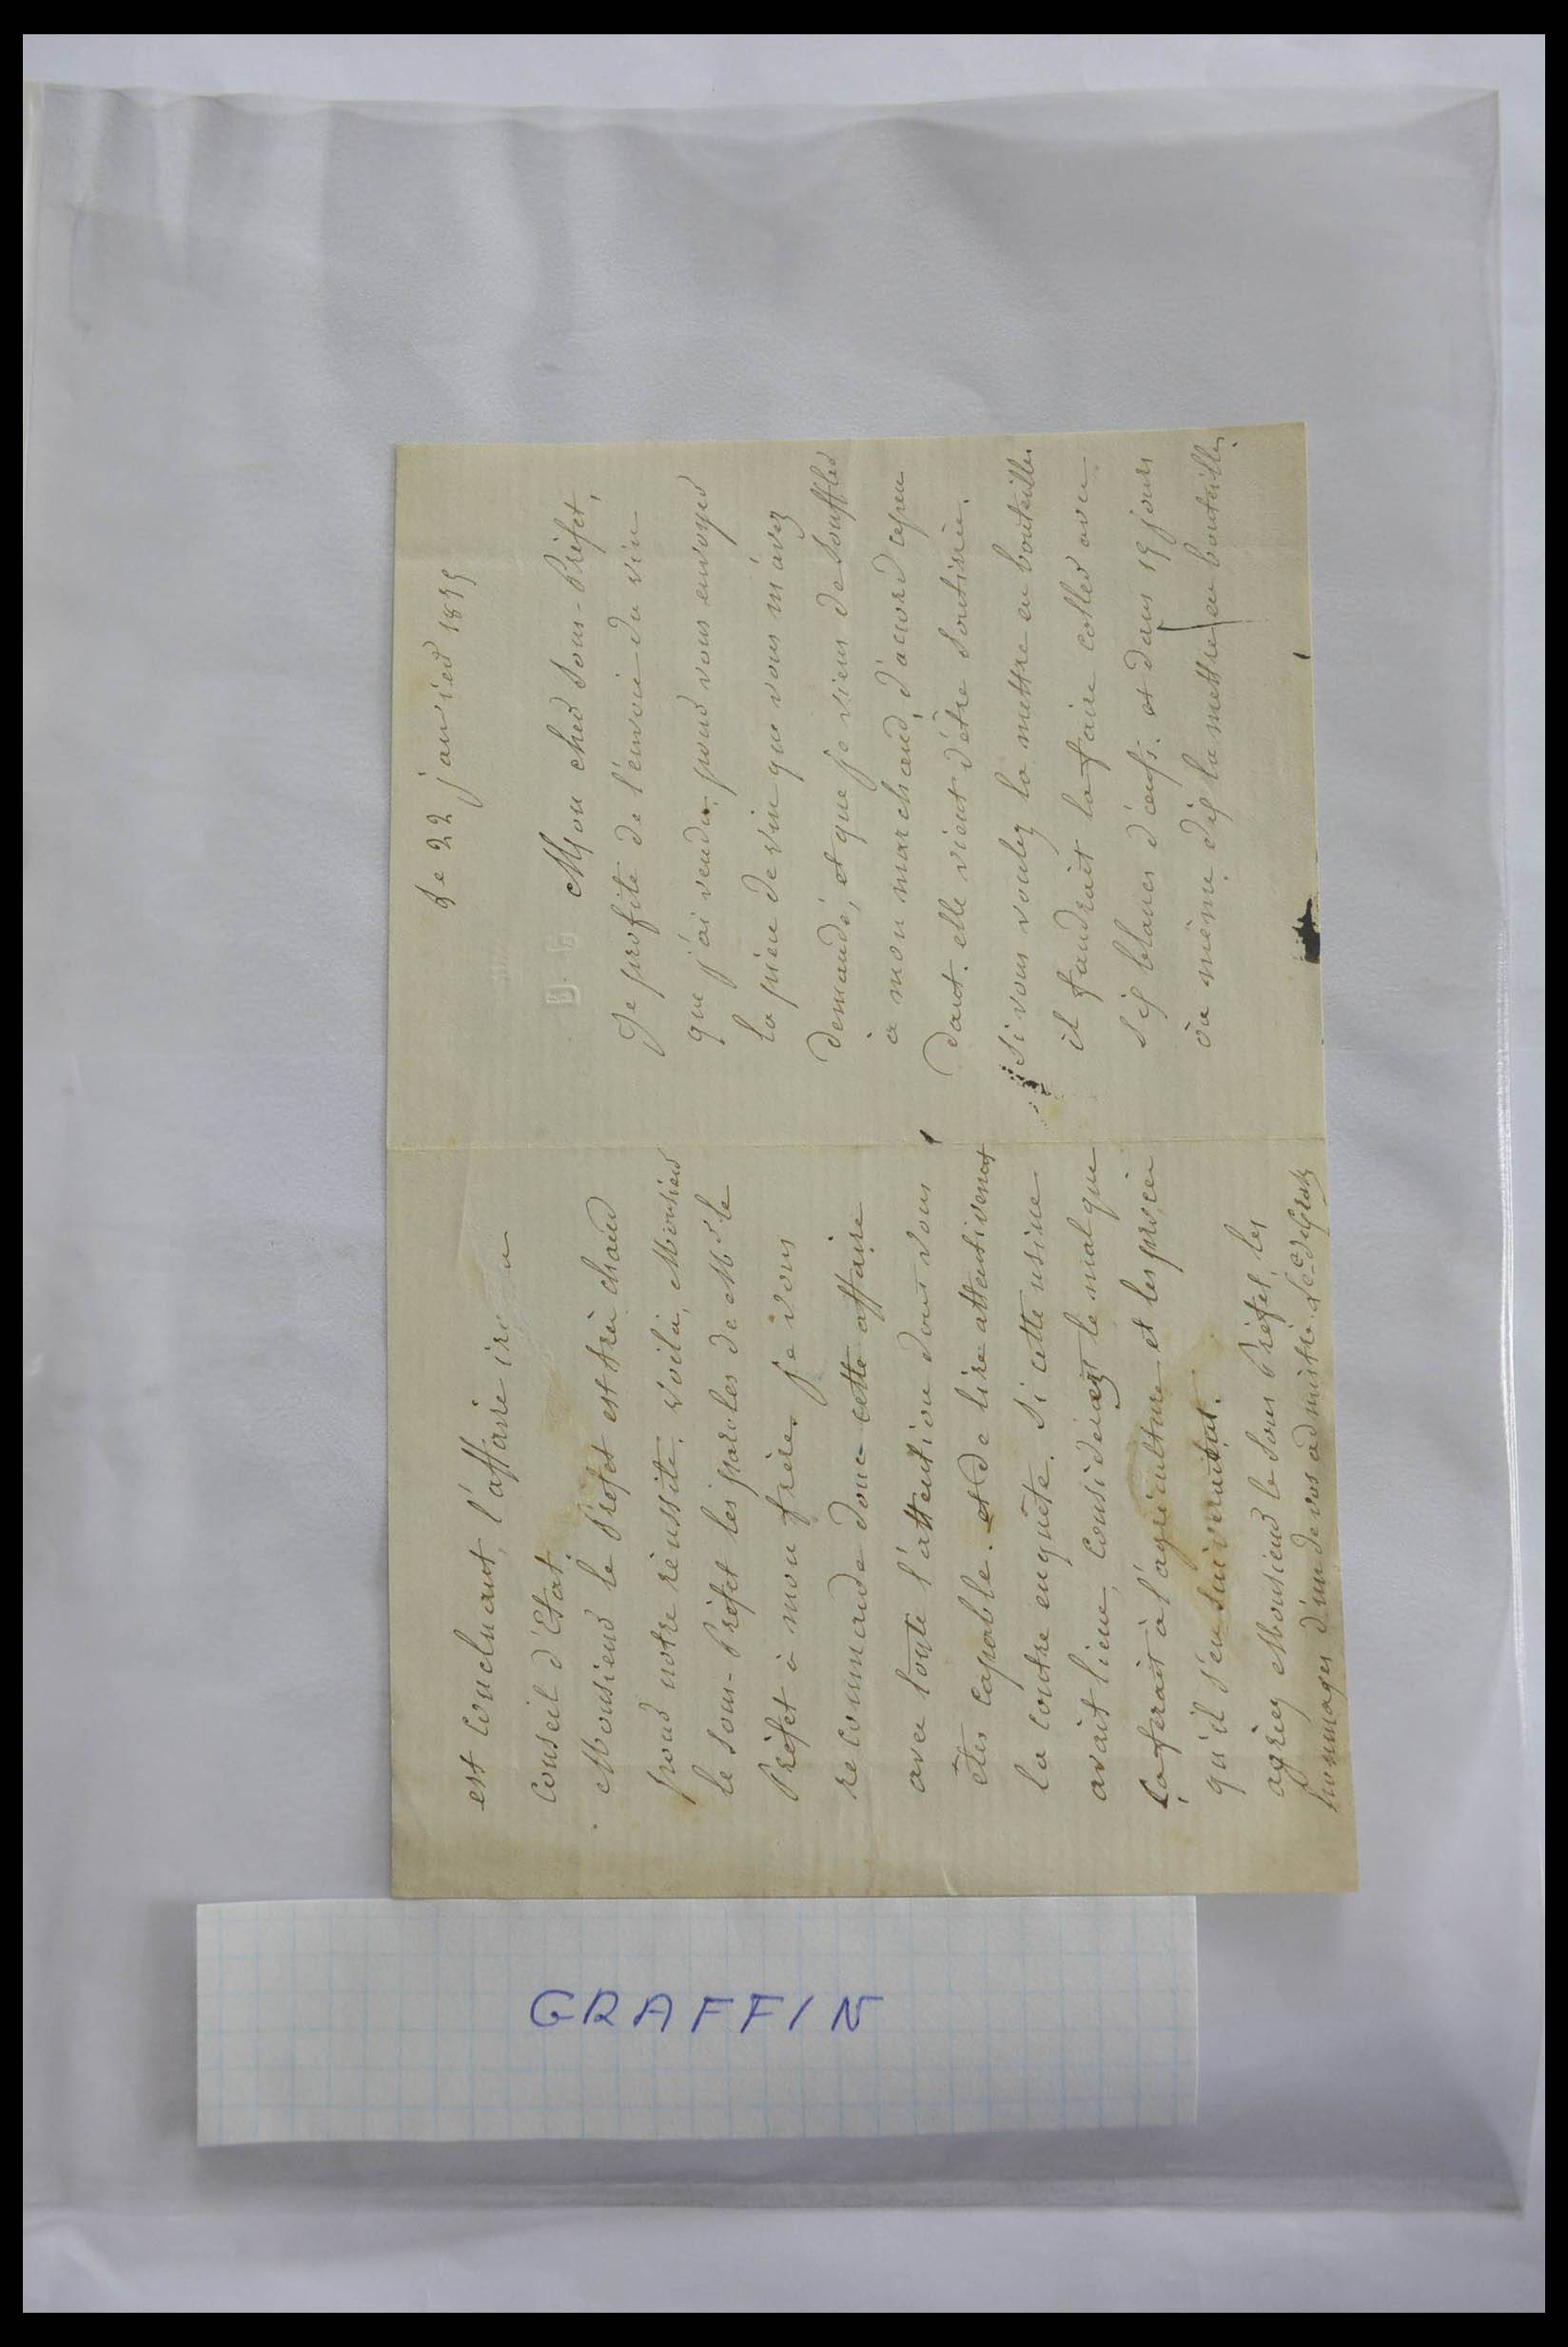 Le 22 janvier 18
Mon cher Sous-Préfet,
Je profite de l'envoie du vin
que j'ai vendu, pour vous envoyer
la pièce de vin que vous m'avez
demandé, et que je viens de souffler
à mon marchand, d'accord cepen
dant. elle vient d'être soutirée.
Si vous voulez la mettre en bouteilles
il faudrait la faire coller avec
six blancs d'œufs. et dans 15 jours
ou même dix la mettre en bouteilles.
est concluant, l'affaire ira
Conseil d'Etat
Monsieur le Préfet est très chaud
pour notre réussite. Voilà, Monsieur
le Sous-Préfet les paroles de Mr le
Préfet à mon frère. Je vous
recommande donc cette affaire
avec toute l'attention dont vous
êtes capable. et de lire attentivement
la contre enquête. Si cette usine
avait lieue, considerez le mal que
ça ferait à l'agriculture et les procès
qu'il s'en suiverait.
agréez Monsieur le Sous Préfet, les
hommages d'un de vos administrés.
GRAFFIN